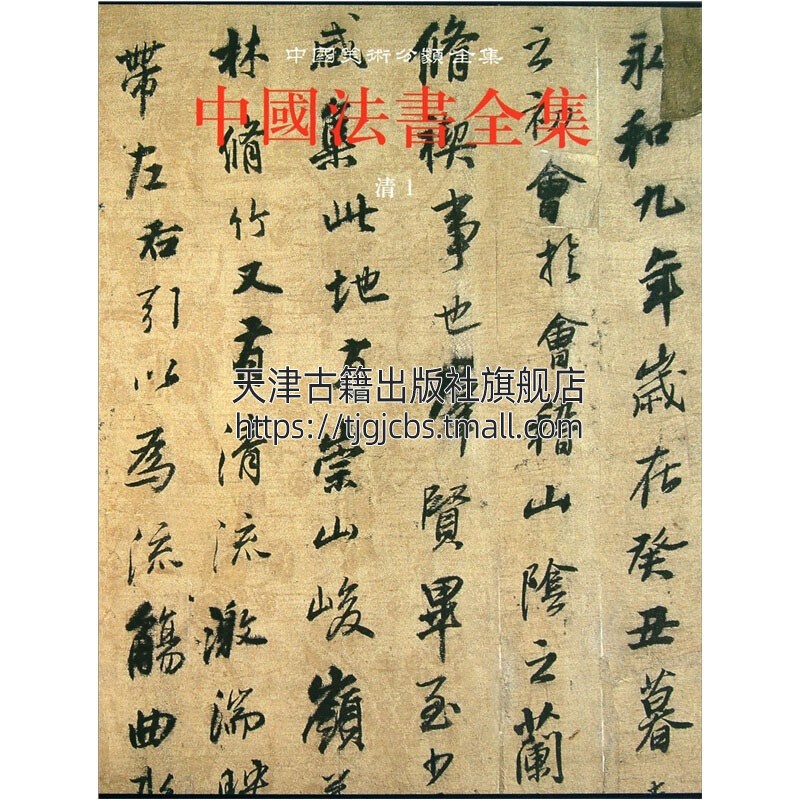 中國美術分類全集
中國法書全集
清 1
天津古籍出版社旗舰店
https://tjgjcbs.tmall.com
永和九年歲在癸丑暮
之初會扵會稽山陰之蘭
脩禊事也羣賢畢至少
咸集此地有崇山峻嶺
林脩竹又有清流激湍映
帶左右引以為流觴曲水